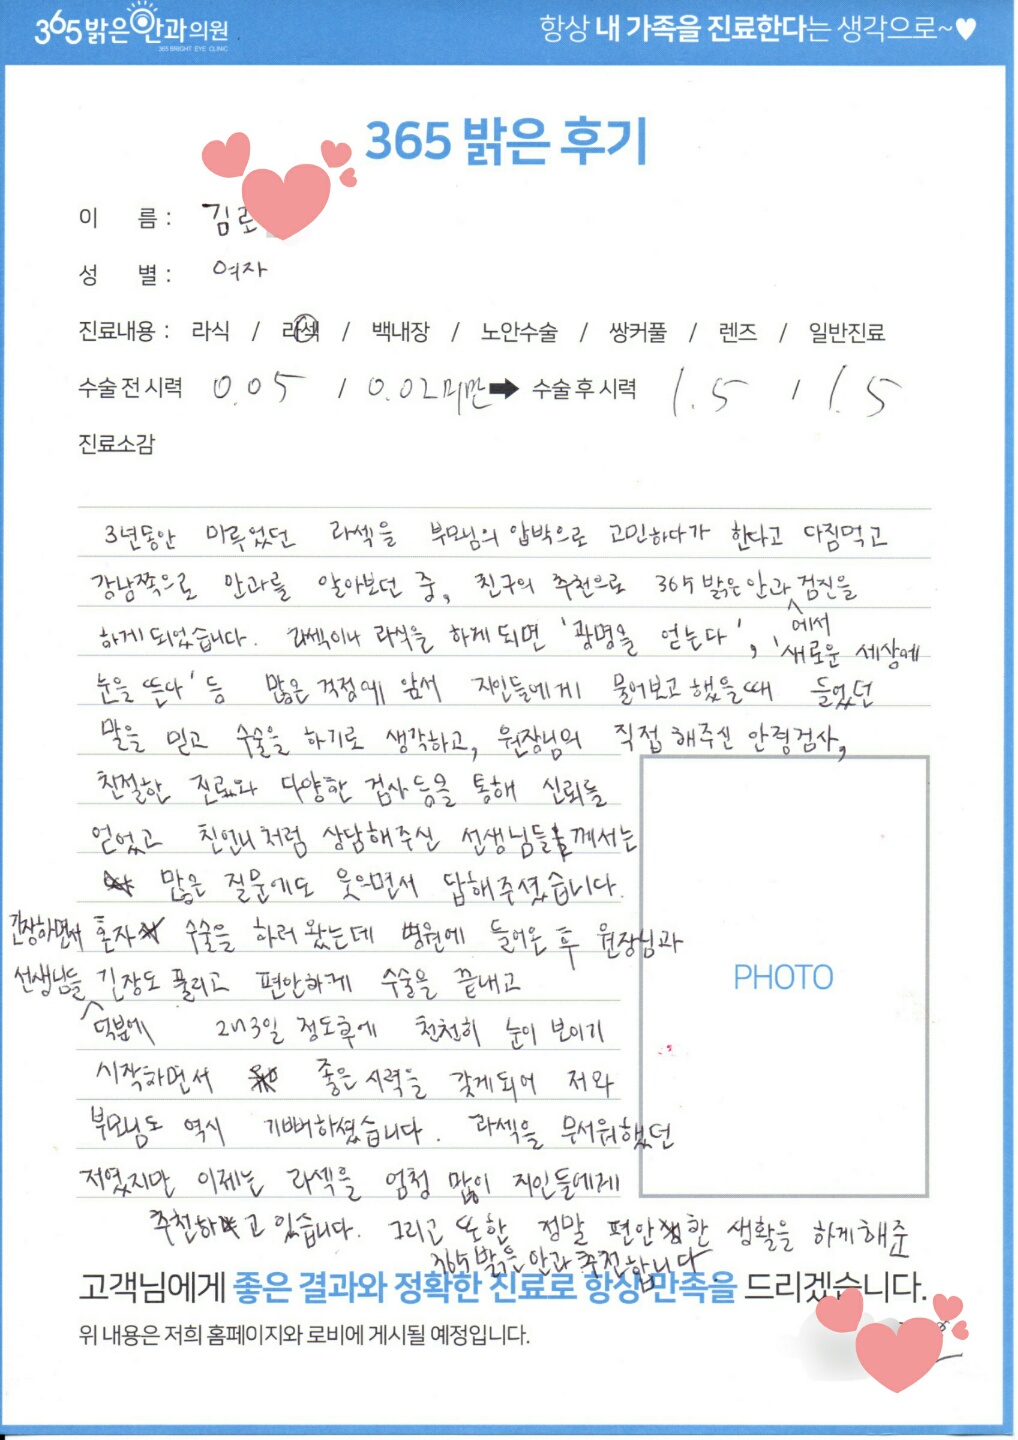 365밝은안과의원
365 BRIGHT EYE CLINIC
항상 내 가족을 진료한다는 생각으로~♥
365 밝은 후기
이 름 : 김로
성 별 : 여자
진료내용 : 라식 / 라섹 / 백내장 / 노안수술 / 쌍커풀 / 렌즈 / 일반진료
수술 전 시력 0.05 / 0.02미만 ➡ 수술 후 시력 1.5 / 1.5
진료소감
3년동안 미루었던 라섹을 부모님의 압박으로 고민하다가 한다고 다짐먹고
강남쪽으로 안과를 알아보던 중, 친구의 추천으로 365밝은안과에서 검진을
하게되었습니다. 라섹이나 라식을 하게되면 '광명을 얻는다', '새로운 세상에
눈을 뜬다' 등 많은 걱정에 앞서 지인들에게 물어보고 했을때 들었던
말을 믿고 수술을 하기로 생각하고, 원장님의 직접 해주신 안경검사,
친절한 진료와 다양한 검사 등을 통해 신뢰를
얻었고 친언니처럼 상담해주신 선생님들께서는
많은 질문에도 웃으면서 답해주셨습니다.
긴장하면서 혼자 수술을 하러 왔는데 병원에 들어온 후 원장님과
선생님들 덕분에 긴장도 풀리고 편안하게 수술을 끝내고
2~3일 정도후에 천천히 눈이 보이기
시작하면서 좋은 시력을 갖게되어 저와
부모님도 역시 기뻐하셨습니다. 라섹을 무서워했던
저였지만 이제는 라섹을 엄청 많이 지인들에게
추천하고 있습니다. 그리고 또한 정말 편안한 생활을 하게해준
365밝은안과 추천합니다
고객님에게 좋은 결과와 정확한 진료로 항상 만족을 드리겠습니다.
위 내용은 저희 홈페이지와 로비에 게시될 예정입니다.
PHOTO